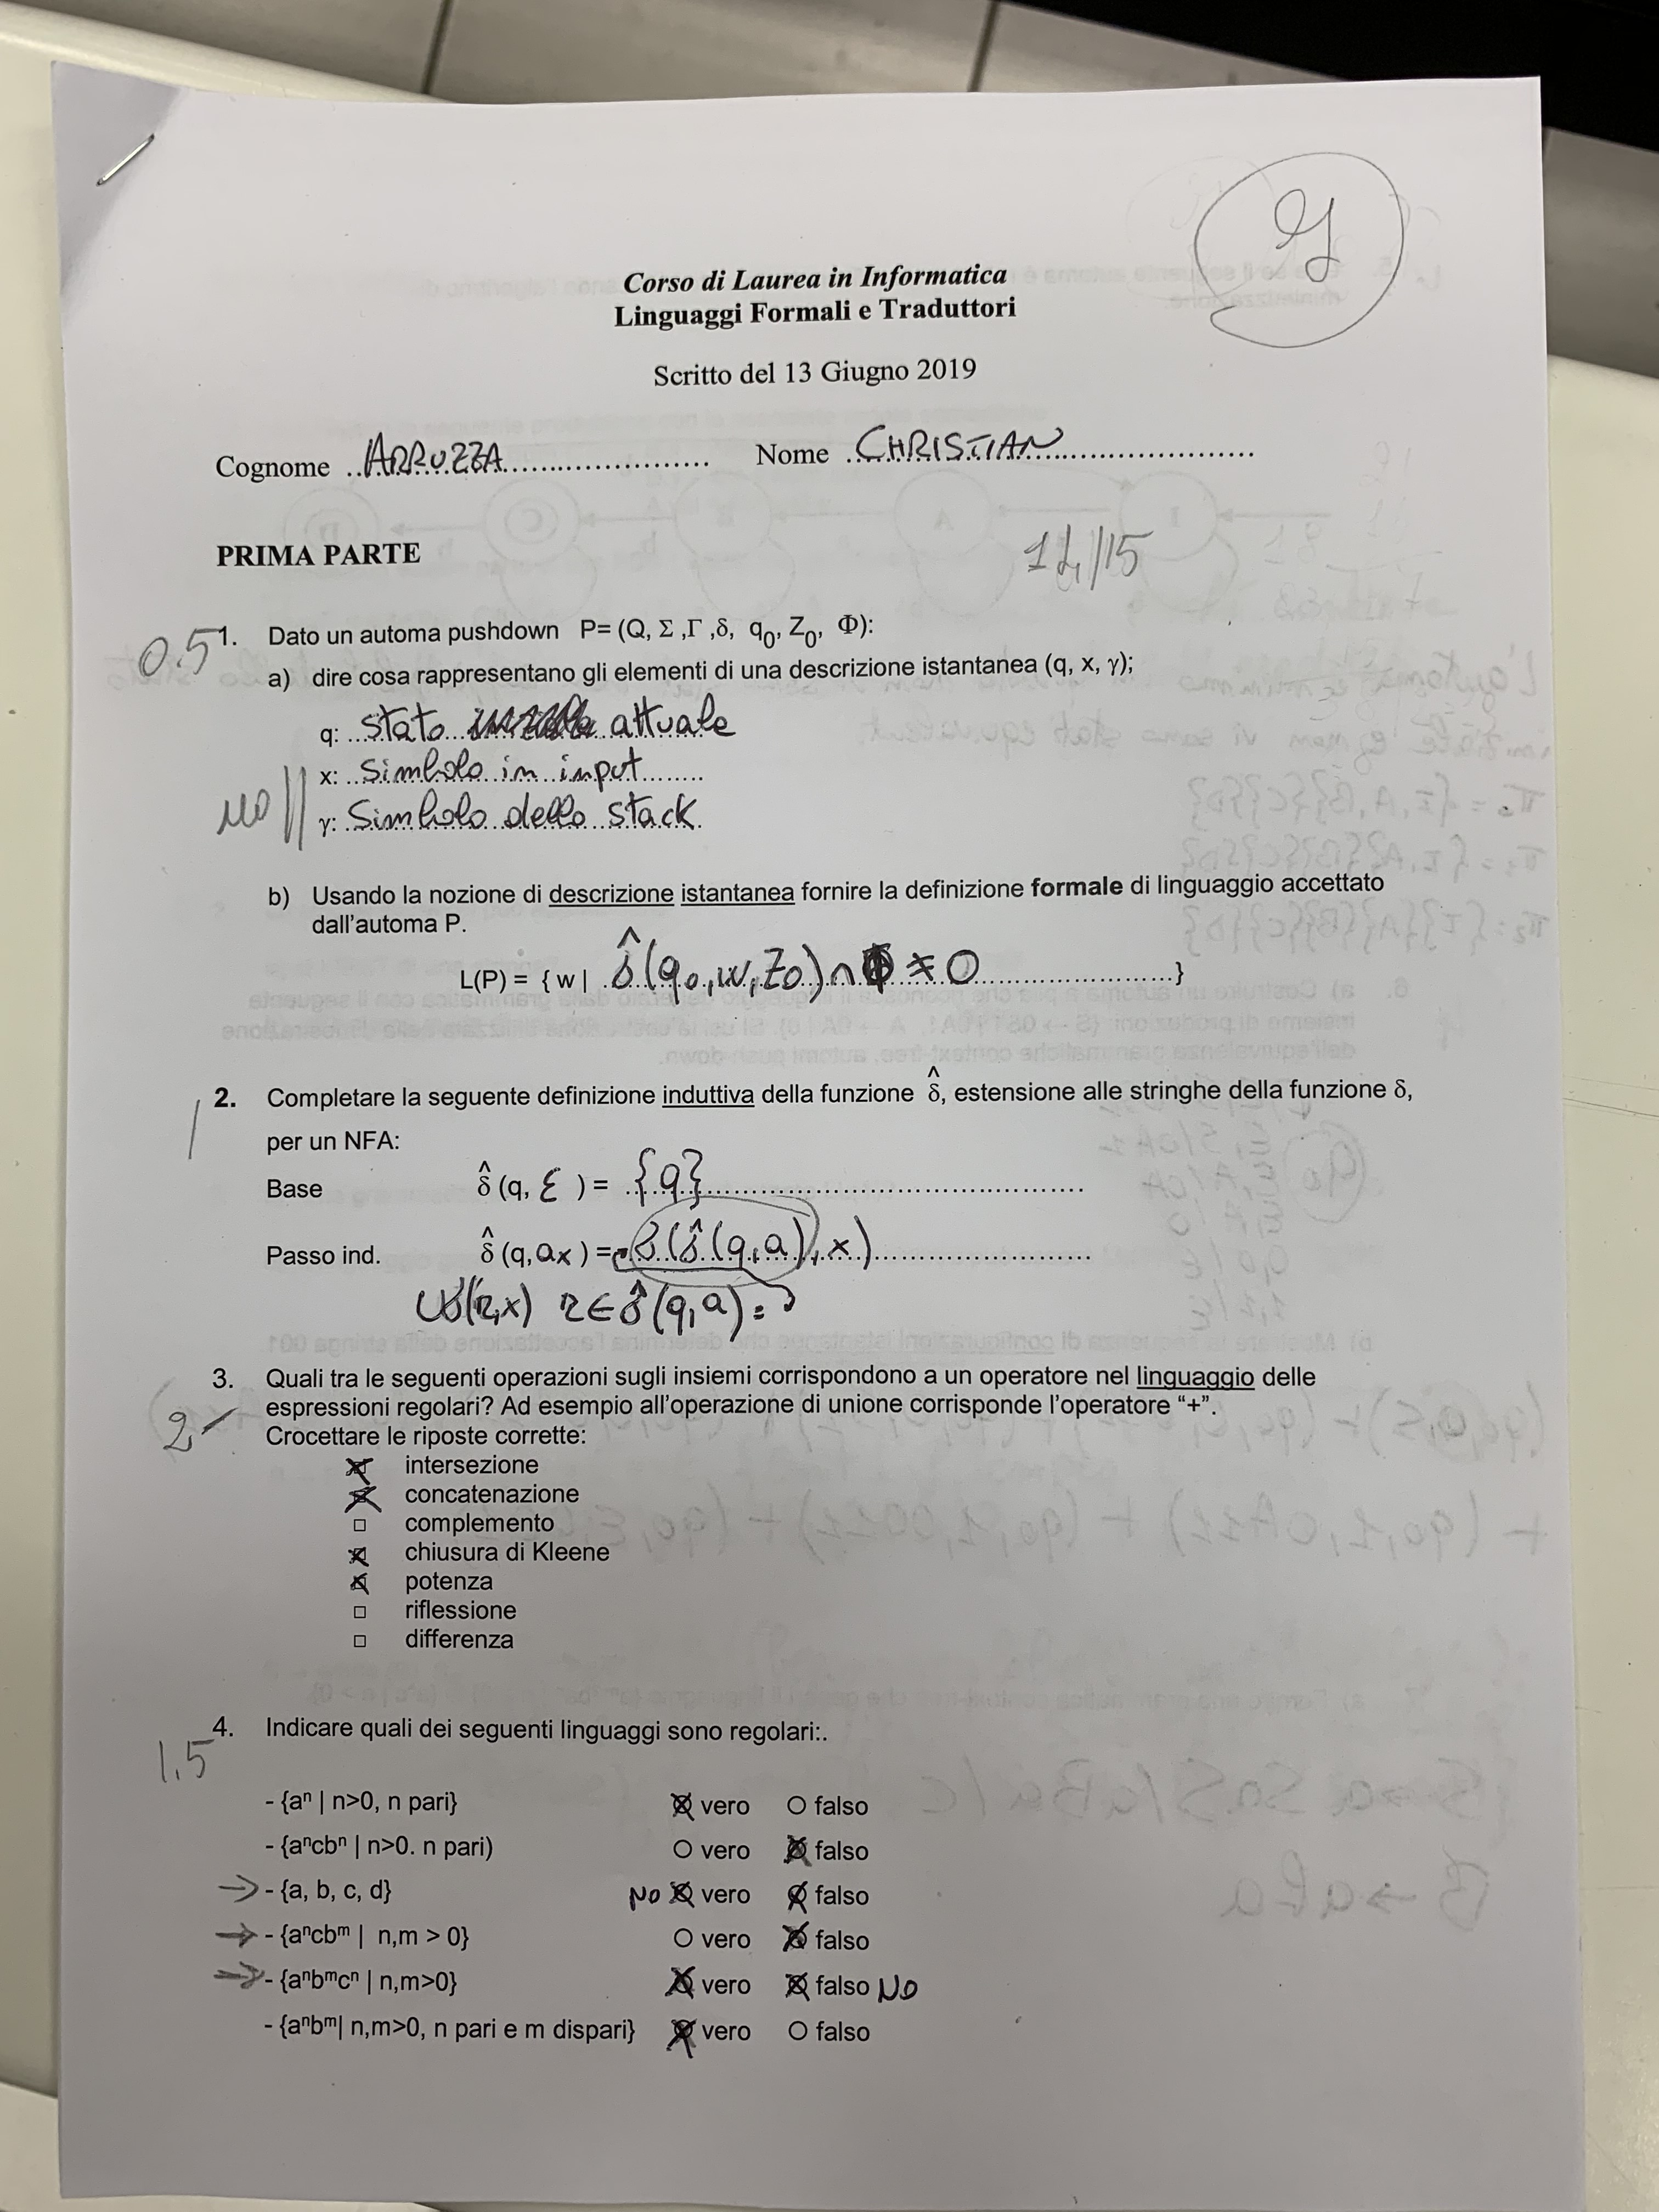 Corso di Laurea in Informatica
Linguaggi Formali e Traduttori
Scritto del 13 Giugno 2019
Cognome ..ARRUZZA.................................... Nome ..CHRISTIAN....................................
PRIMA PARTE
0.5 1. Dato un automa pushdown P= (Q, Σ ,Γ ,δ, q0, Z0, Φ):
a) dire cosa rappresentano gli elementi di una descrizione istantanea (q, x, γ);
q: stato attuale
NO x: Simbolo in input
γ: Simbolo dello stack
b) Usando la nozione di descrizione istantanea fornire la definizione formale di linguaggio accettato
dall'automa P.
L(P) = { w | δ̂(q0,w,Z0)∩Φ ≠ O ..........................}
1 2. Completare la seguente definizione induttiva della funzione δ̂, estensione alle stringhe della funzione δ,
per un NFA:
Base δ̂ (q, ε ) = {q}
Passo ind. δ̂ (q,ax ) = δ(δ̂(q,a),x)
∪δ(r,x) r∈δ̂(q,a)
3. Quali tra le seguenti operazioni sugli insiemi corrispondono a un operatore nel linguaggio delle
2 espressioni regolari? Ad esempio all'operazione di unione corrisponde l'operatore “+”.
Crocettare le riposte corrette:
intersezione
concatenazione
complemento
chiusura di Kleene
potenza
riflessione
differenza
4. Indicare quali dei seguenti linguaggi sono regolari:.
1.5
- {aⁿ | n>0, n pari} vero falso
- {aⁿcbⁿ | n>0. n pari) vero falso
→ - {a, b, c, d} NO vero falso
→ - {aⁿcbᵐ | n,m > 0} vero falso
→ - {aⁿbᵐcⁿ | n,m>0} vero falso NO
- {aⁿbᵐ| n,m>0, n pari e m dispari} vero falso